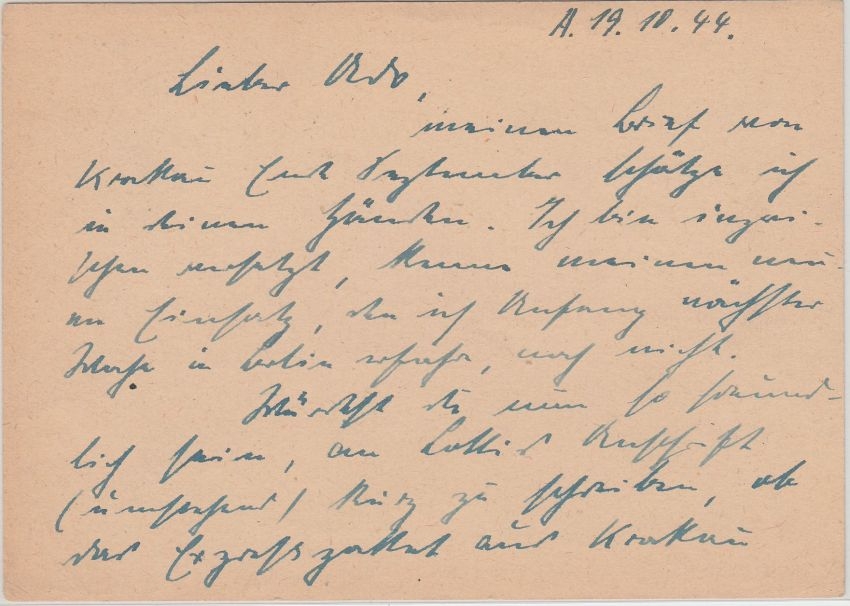 A. 19.10.44.
Lieber Udo,
meinen Brief von
Krakau Ende September schätze ich
in deinen Händen. Ich bin inzwi-
schen versetzt, kenne meinen neu-
en Einsatz, den ich Anfang nächster
Woche in Berlin erfahre, noch nicht.
Würdest du nun so freund-
lich sein, an Lottis Anschrift
(umstehend) kurz zu schreiben, ob
das Expresspaket aus Krakau